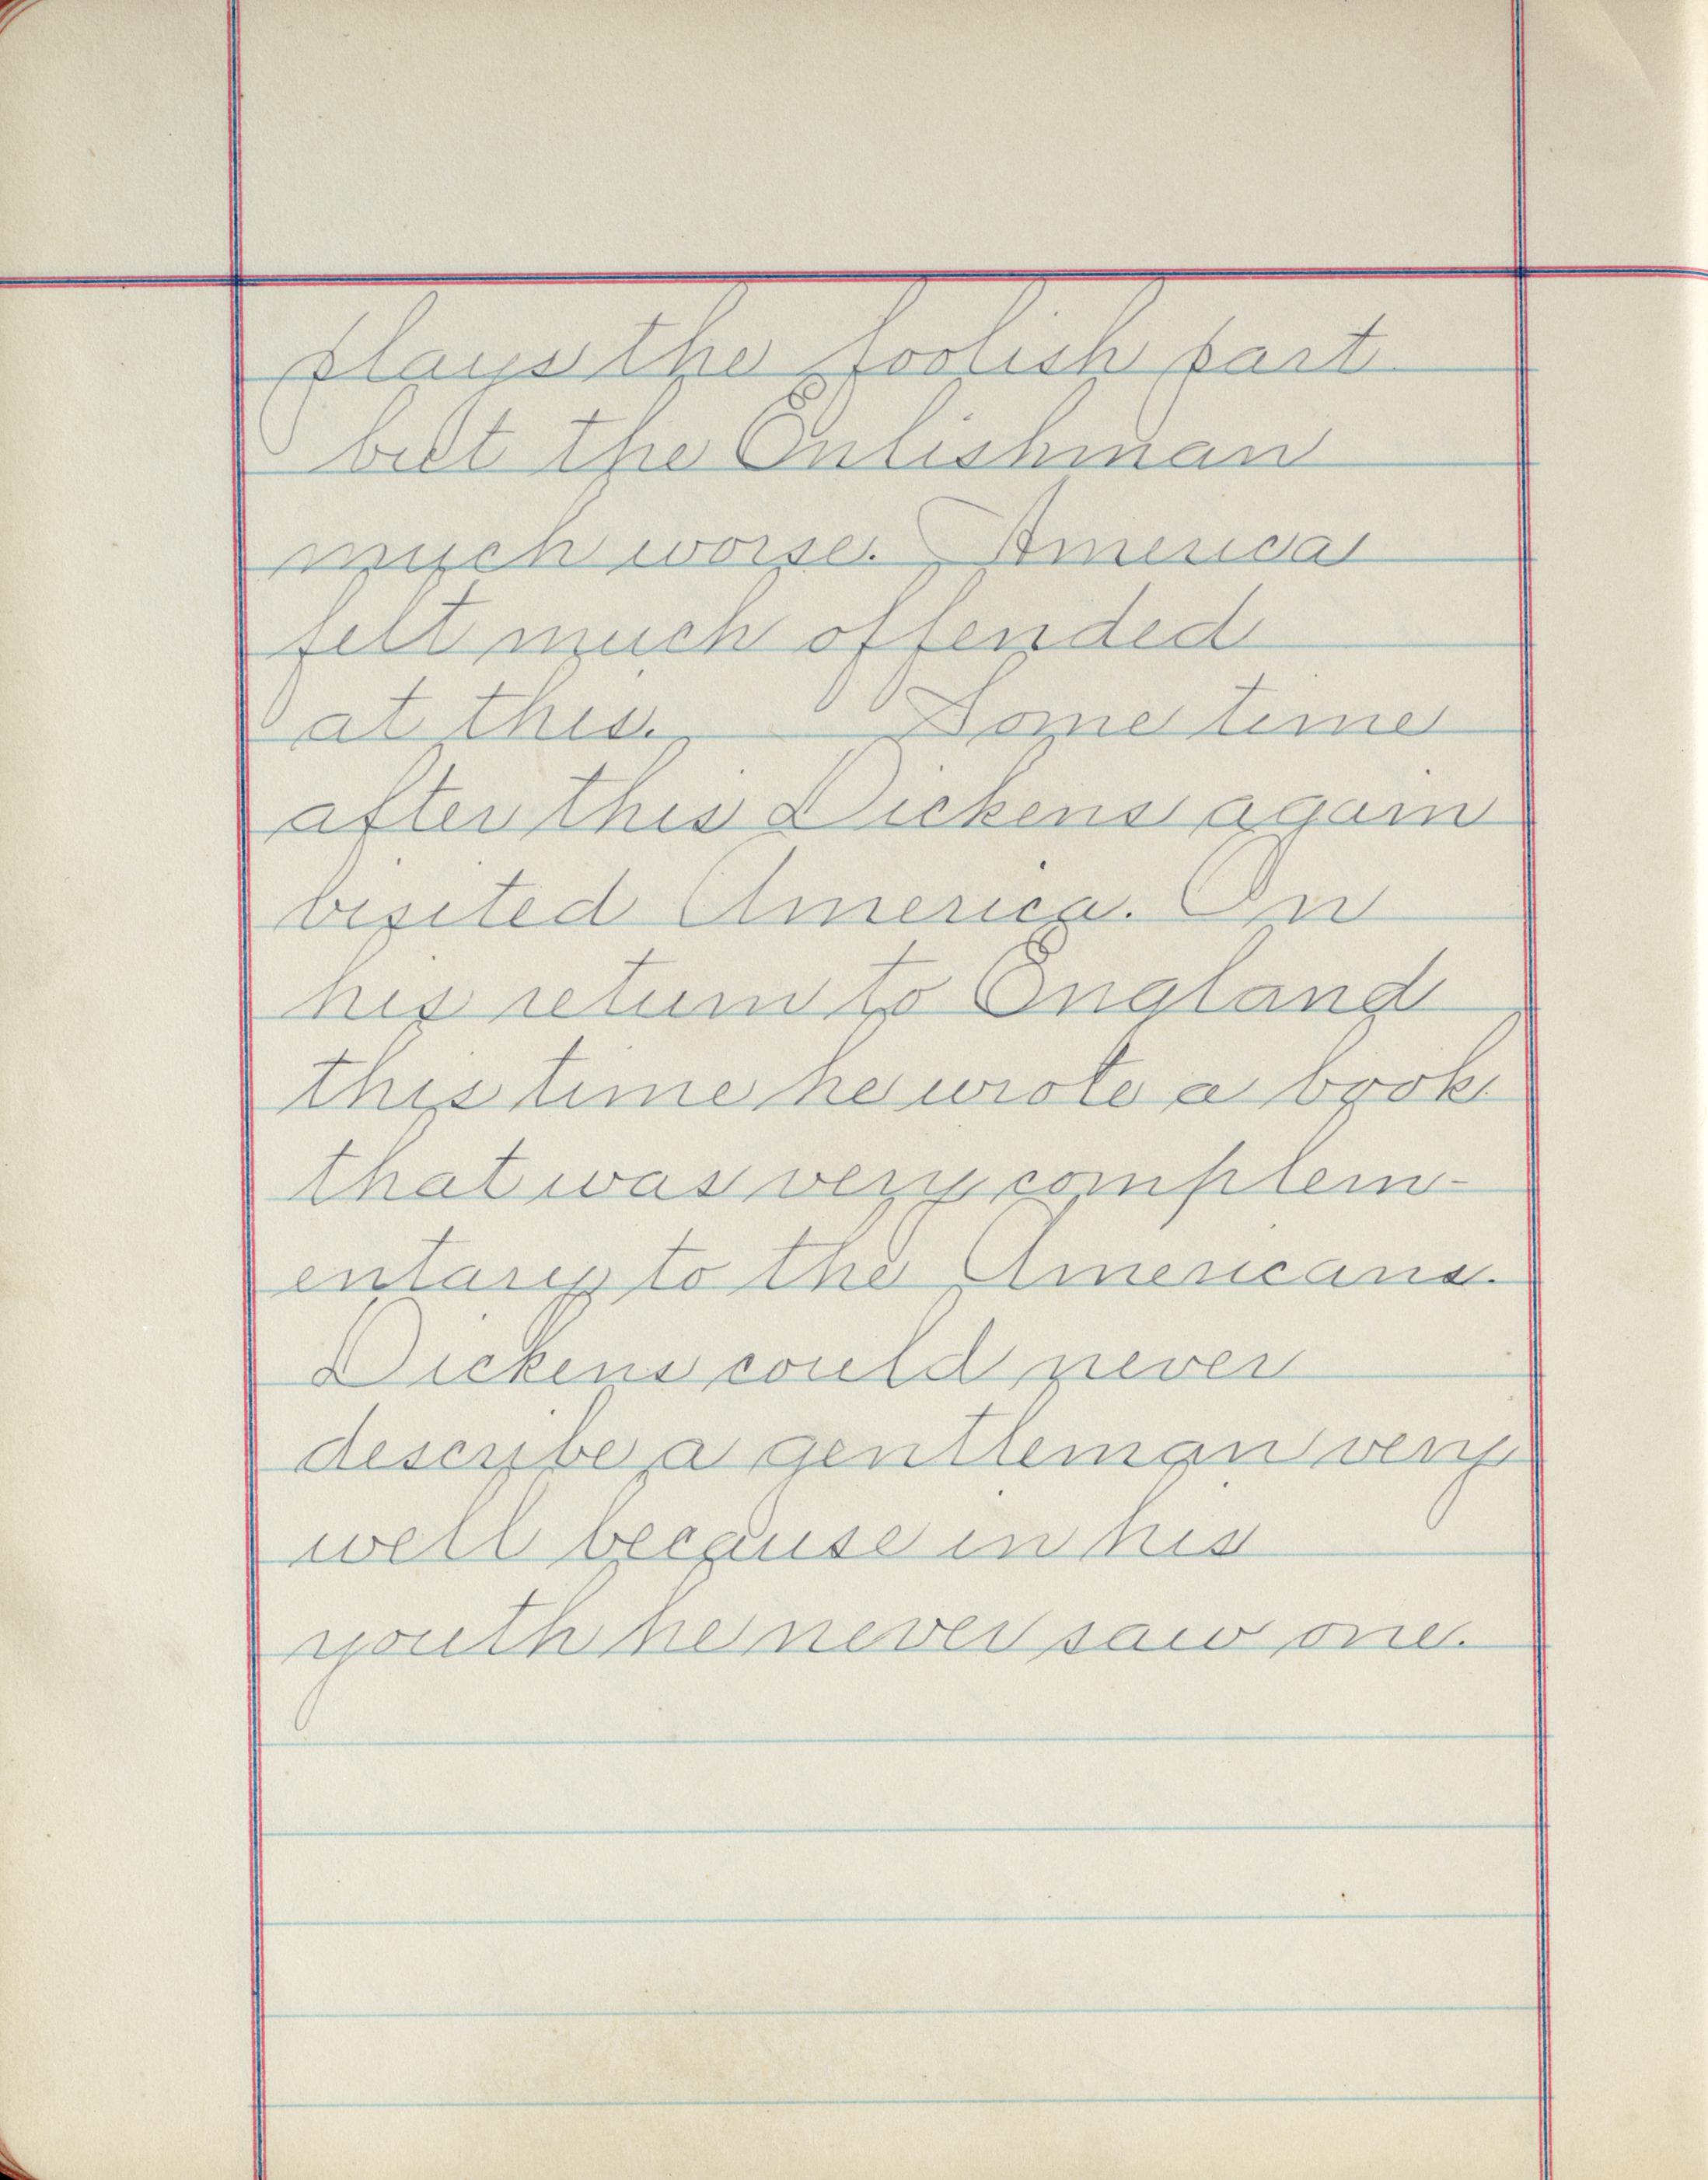 plays the foolish part
but the Enlishman
much worse. America
felt much offended
at this. Some time
after this Dickens again
visited America. On
his return to England
this time he wrote a book
that was very complem-
entary to the Americans.
Dickens could never
describe a gentleman very
well because in his
youth he never saw one.